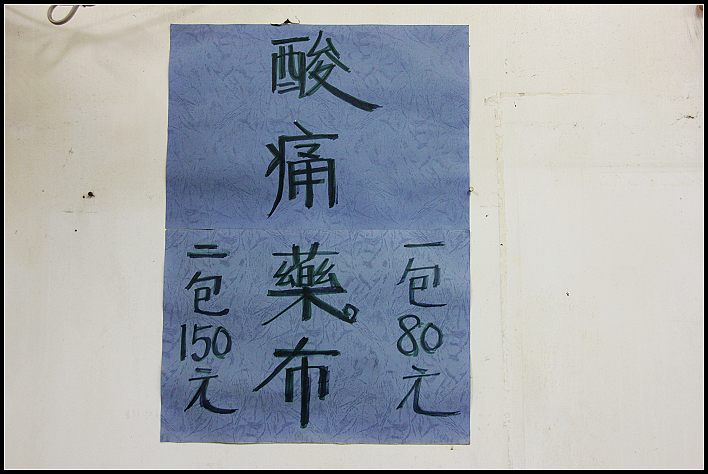 酸痛藥布
一包80元
二包150元